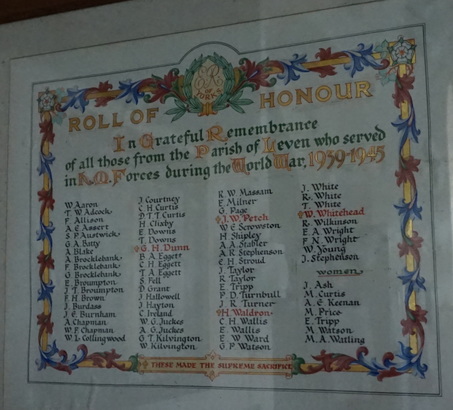 ROLL OF HONOUR
In Grateful Remembrance
of all those from the Parish of Leven who served
in H.M. Forces during the World War, 1939-1945
W Aaron
T W Adcock
F Allison
A E Assert
S P Austwick
G A Batty
J Blake
A Brocklebank
F Brocklebank
G Brocklebank
E Broumpton
J T Broumpton
F H Brown
J Burdass
J E Burnham
A Chapman
W F Chapman
W L Collingwood
J Courtney
C H Curtis
D T T Curtis
H Claby
E Downs
T Downs
G. H. Dunn
B A Eggett
C H Eggett
T A Eggett
S Fell
D Grant
J Hallowell
J Hayton
C Ireland
W G Juckes
A G Juckes
G T Kilvington
W Kilvington
R W Massam
E Milner
G Page
J. W. Petch
W E Scrowston
H Shipley
A A Stabler
A R Stephenson
E H Stroud
J Taylor
R Taylor
E Tripp
P D Turnbull
J R Turner
H Waldron
C H Wallis
E Wallis
E W Ward
G P Watson
J. White
R. White
T. White
W. Whitehead
R. Wilkinson
E A Wright
F N. Wright
W Young
J. Stephenson
women
J. Ash
M. Curtis
A. E Keenan
M. Price
E. Tripp
M Watson
M. A. Watling
THESE MADE THE SUPREME SACRIFICE